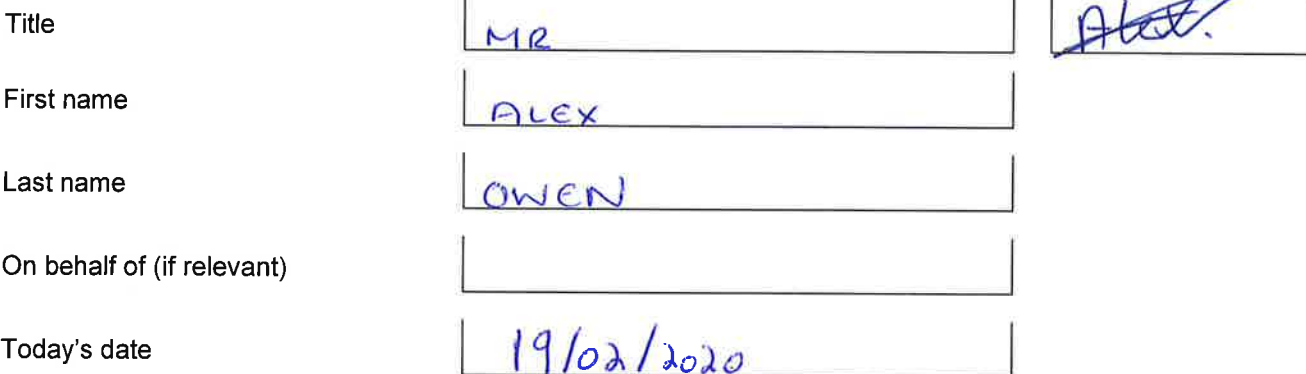 Title MR
First name ALEX
Last name OWEN
On behalf of (if relevant)
Today's date 19/02/2020